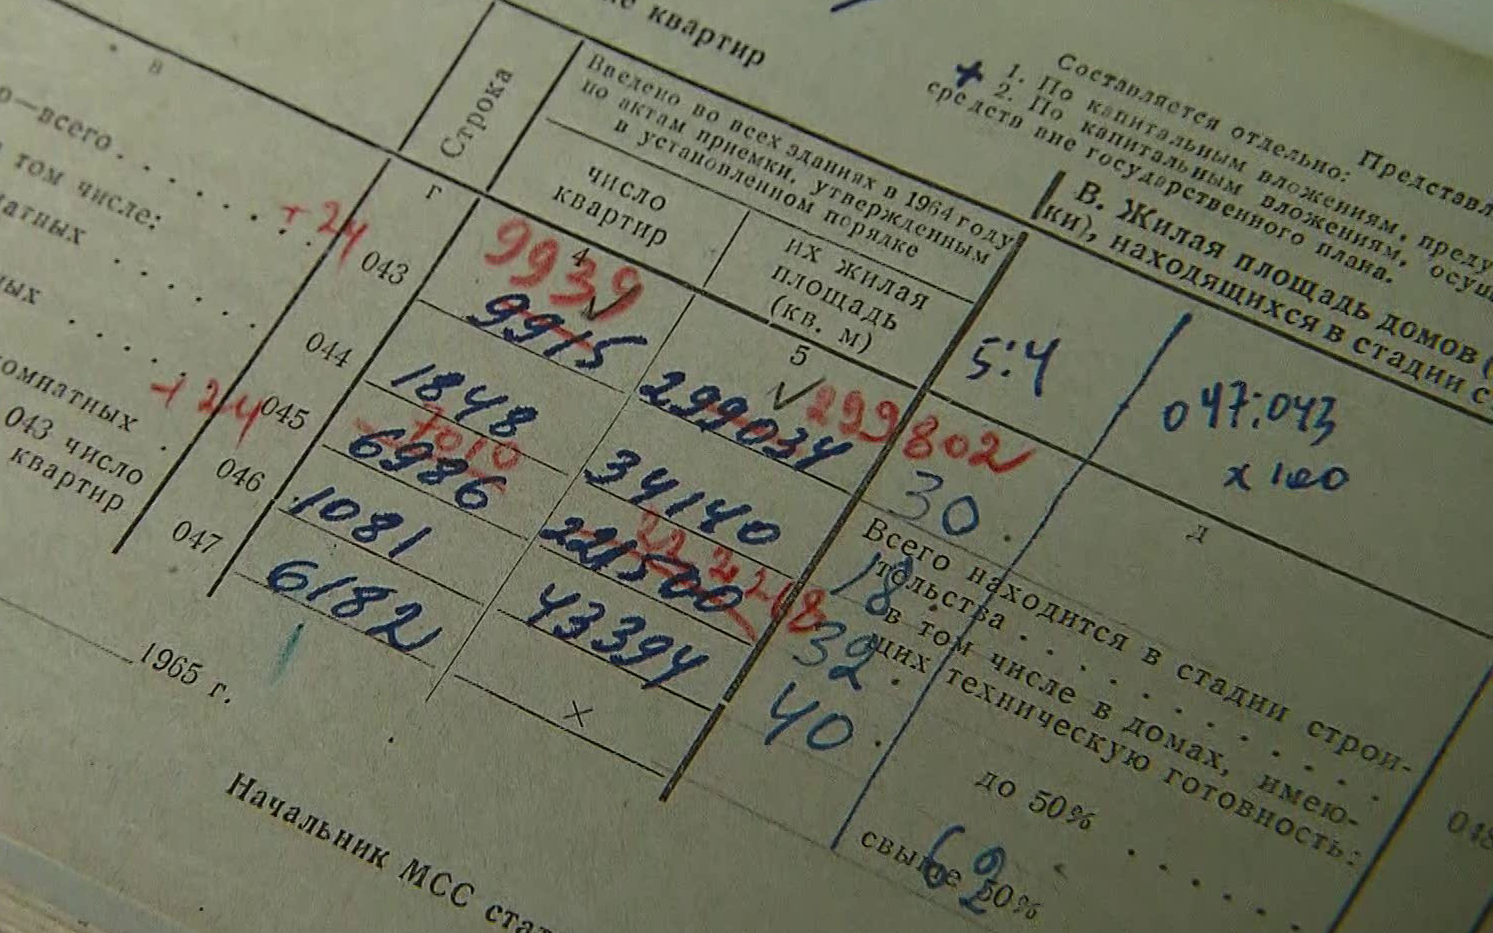 квартир
Составляется отдельно:
1. По капитальным вложениям, преду
+ 2. По капитальным вложениям, осущ
средств вне государственного плана.
Представл
В. Жилая площадь домов (
ки), находящихся в стадии с
в
Строка
Введено во всех зданиях в 1964 году
по актам приемки, утвержденным
в установленном порядке
число
квартир
их жилая
площадь
(кв. м)
г
4
5
5:4
047:043
x 100
д
о—всего
том числе:
атных
ных
омнатных
043 число
квартир
+24
043
9939
9915
299034
299802
30
044
1848
34140
18
+24
045
7010
6986
221500
222268
32
046
1081
43394
40
047
6182
×
62
Всего находится в стадии строи-
тельства
в том числе в домах, имею-
щих техническую готовность:
до 50%
свыше 50%
048
1965 г.
Начальник МСС стат